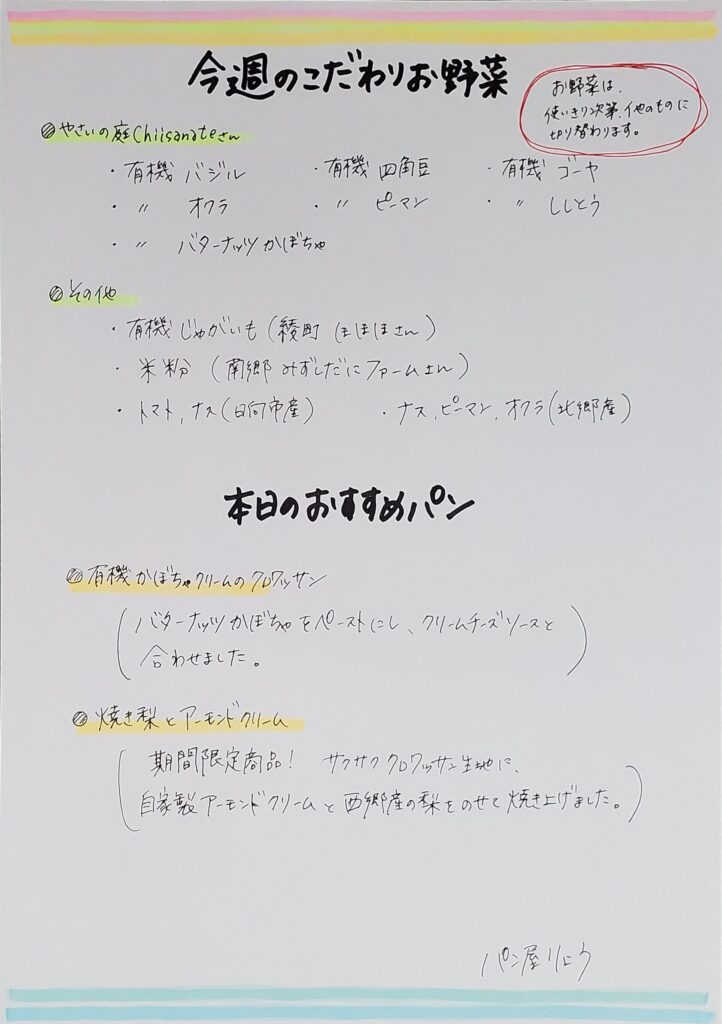 今週のこだわりお野菜
お野菜は、
使いきり次第、他のものに
切り替わります。
やさいの庭Chiisanateさん
・有機 バジル ・有機 四角豆 ・有機 ゴーヤ
・〃 オクラ ・〃 ピーマン ・〃 ししとう
・〃 バターナッツかぼちゃ
その他
・有機じゃがいも(綾町 まほほさん)
・米粉 (南郷 みずしだにファームさん)
・トマト,ナス(日向市産) ・ナス,ピーマン,オクラ(北郷産)
本日のおすすめパン
有機かぼちゃクリームのクロワッサン
(バターナッツかぼちゃをペーストにし、クリームチーズソースと
合わせました。)
焼き梨とアーモンドクリーム
(期間限定商品! サクサククロワッサン生地に、
自家製アーモンドクリームと西郷産の梨をのせて焼き上げました。)
パン屋りょう